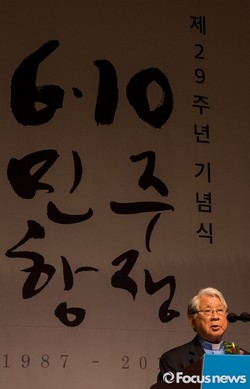 제29주년 기념식
6·10
민주
항쟁
1987 - 20
Focus news